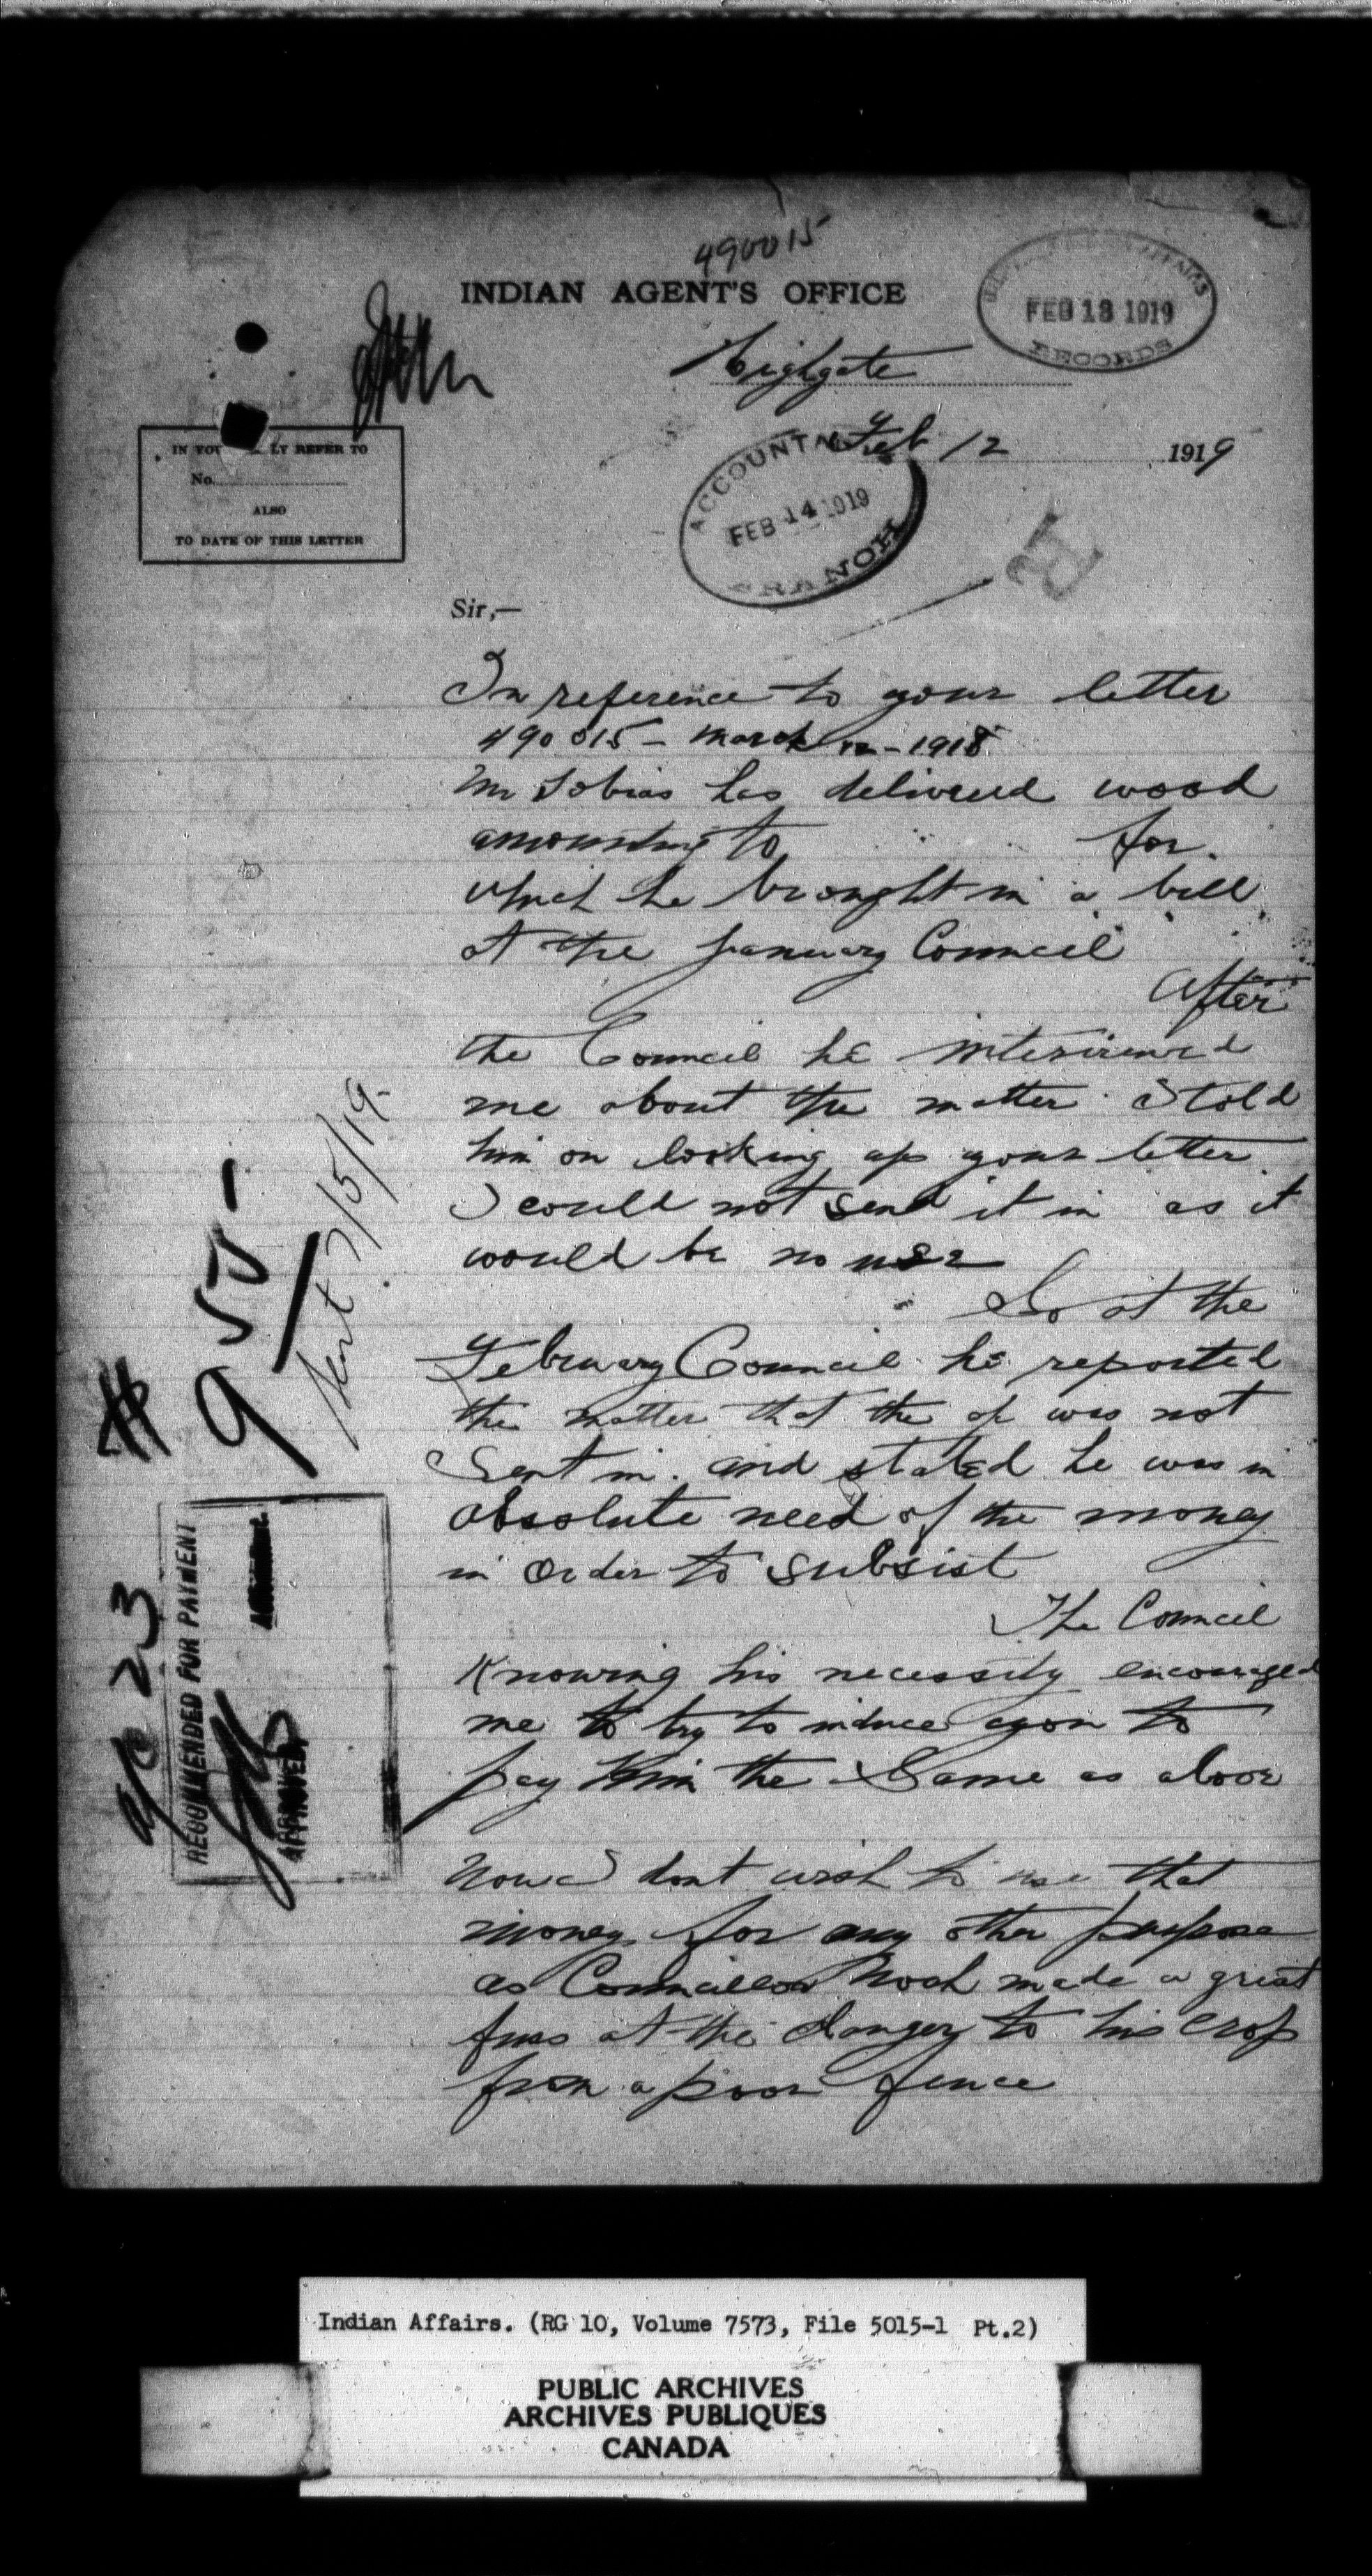 490015
INDIAN AGENT'S OFFICE
AFFAIRS
FEB 13 1919
RECORDS
Highgate
Feb 12 1919
ACCOUNTA
FEB 14 1919
BRANCH
IN YOU LY REFER TO
No.
ALSO
TO DATE OF THIS LETTER
Sir,—
In reference to your letter
490015 - March 12 - 1918
Mr Tobias has delivered wood
amounting to for
which he brought in a bill
at the January Council
After
the Council he interviewed
me about the matter I told
him on looking up your letter
I could not send it in as it
would be no use
So at the
February Council he reported
the matter that the ap was not
Sent in. and stated he was in
absolute need of the money
in order to subsist
The Council
Knowing his necessity encouraged
me to try to induce you to
pay him the Same as above
Now I dont wish to use that
money for any other purpose
as Councillor Noah made a great
fuss at the danger to his crop
from a poor fence
# 955 -
23
RECOMMENDED FOR PAYMENT
APPROVED
Indian Affairs. (RG 10, Volume 7573, File 5015-1 Pt.2)
PUBLIC ARCHIVES
ARCHIVES PUBLIQUES
CANADA